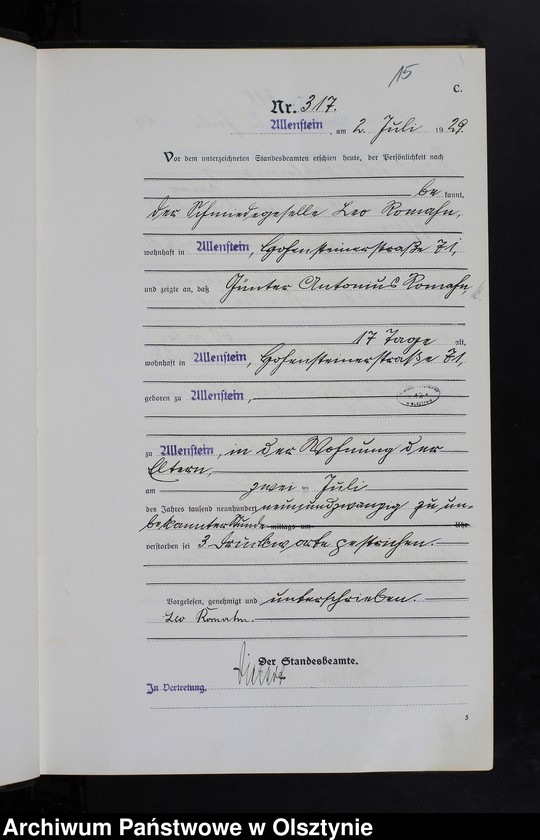 15
C.
Nr. 317.
Allenstein, am 2. Juli 1929.
Vor dem unterzeichneten Standesbeamten erschien heute, der Persönlichkeit nach
bekannt,
der Schmiedegeselle Leo Romahn,
wohnhaft in Allenstein, Hohensteinerstraße 71,
und zeigte an, daß Günter Antonius Romahn
17 Tage alt,
wohnhaft in Allenstein, Hohensteinerstraße 71,
geboren zu Allenstein,
zu Allenstein, in der Wohnung der
Eltern,
am zwei ten Juli
des Jahres tausend neunhundert neunundzwanzig zu un-
bekannter Stunde mittags um Uhr
verstorben sei 3 Druckworte gestrichen.
Vorgelesen, genehmigt und unterschrieben.
Leo Romahn.
Der Standesbeamte.
In Vertretung.
5
Archiwum Państwowe w Olsztynie